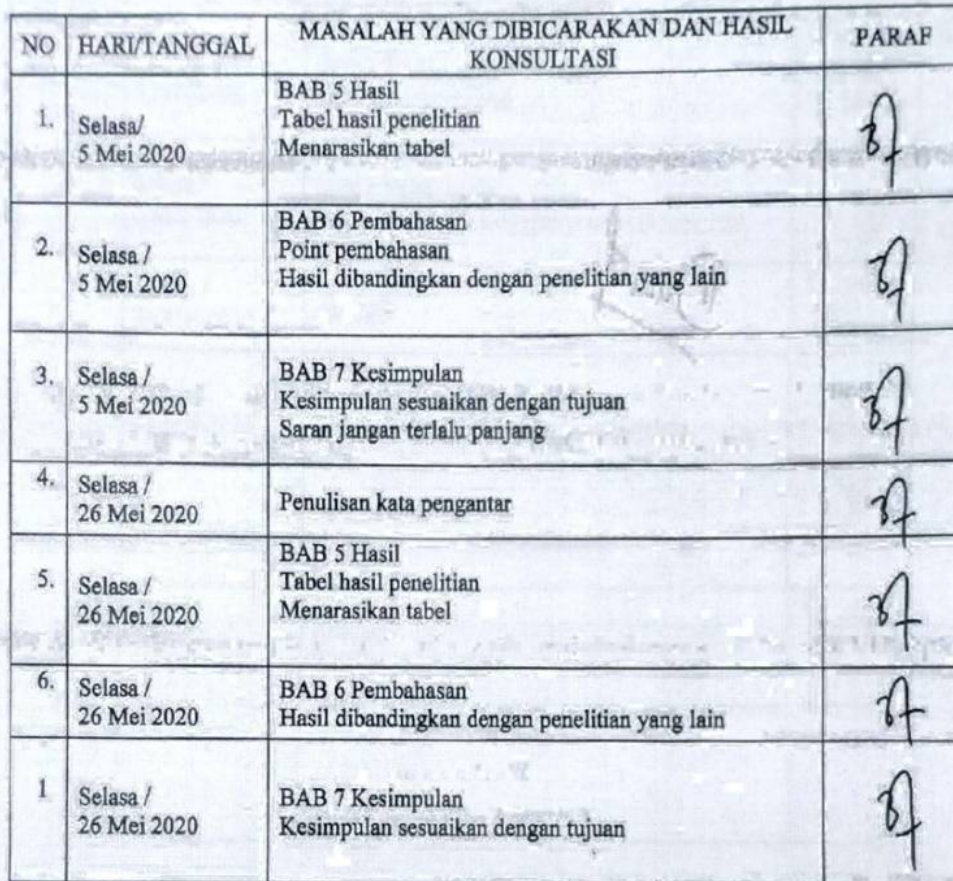 NO HARI/TANGGAL MASALAH YANG DIBICARAKAN DAN HASIL KONSULTASI PARAF
1. Selasa/
5 Mei 2020
BAB 5 Hasil
Tabel hasil penelitian
Menarasikan tabel
2. Selasa /
5 Mei 2020
BAB 6 Pembahasan
Point pembahasan
Hasil dibandingkan dengan penelitian yang lain
3. Selasa /
5 Mei 2020
BAB 7 Kesimpulan
Kesimpulan sesuaikan dengan tujuan
Saran jangan terlalu panjang
4. Selasa /
26 Mei 2020
Penulisan kata pengantar
5. Selasa /
26 Mei 2020
BAB 5 Hasil
Tabel hasil penelitian
Menarasikan tabel
6. Selasa /
26 Mei 2020
BAB 6 Pembahasan
Hasil dibandingkan dengan penelitian yang lain
1 Selasa /
26 Mei 2020
BAB 7 Kesimpulan
Kesimpulan sesuaikan dengan tujuan